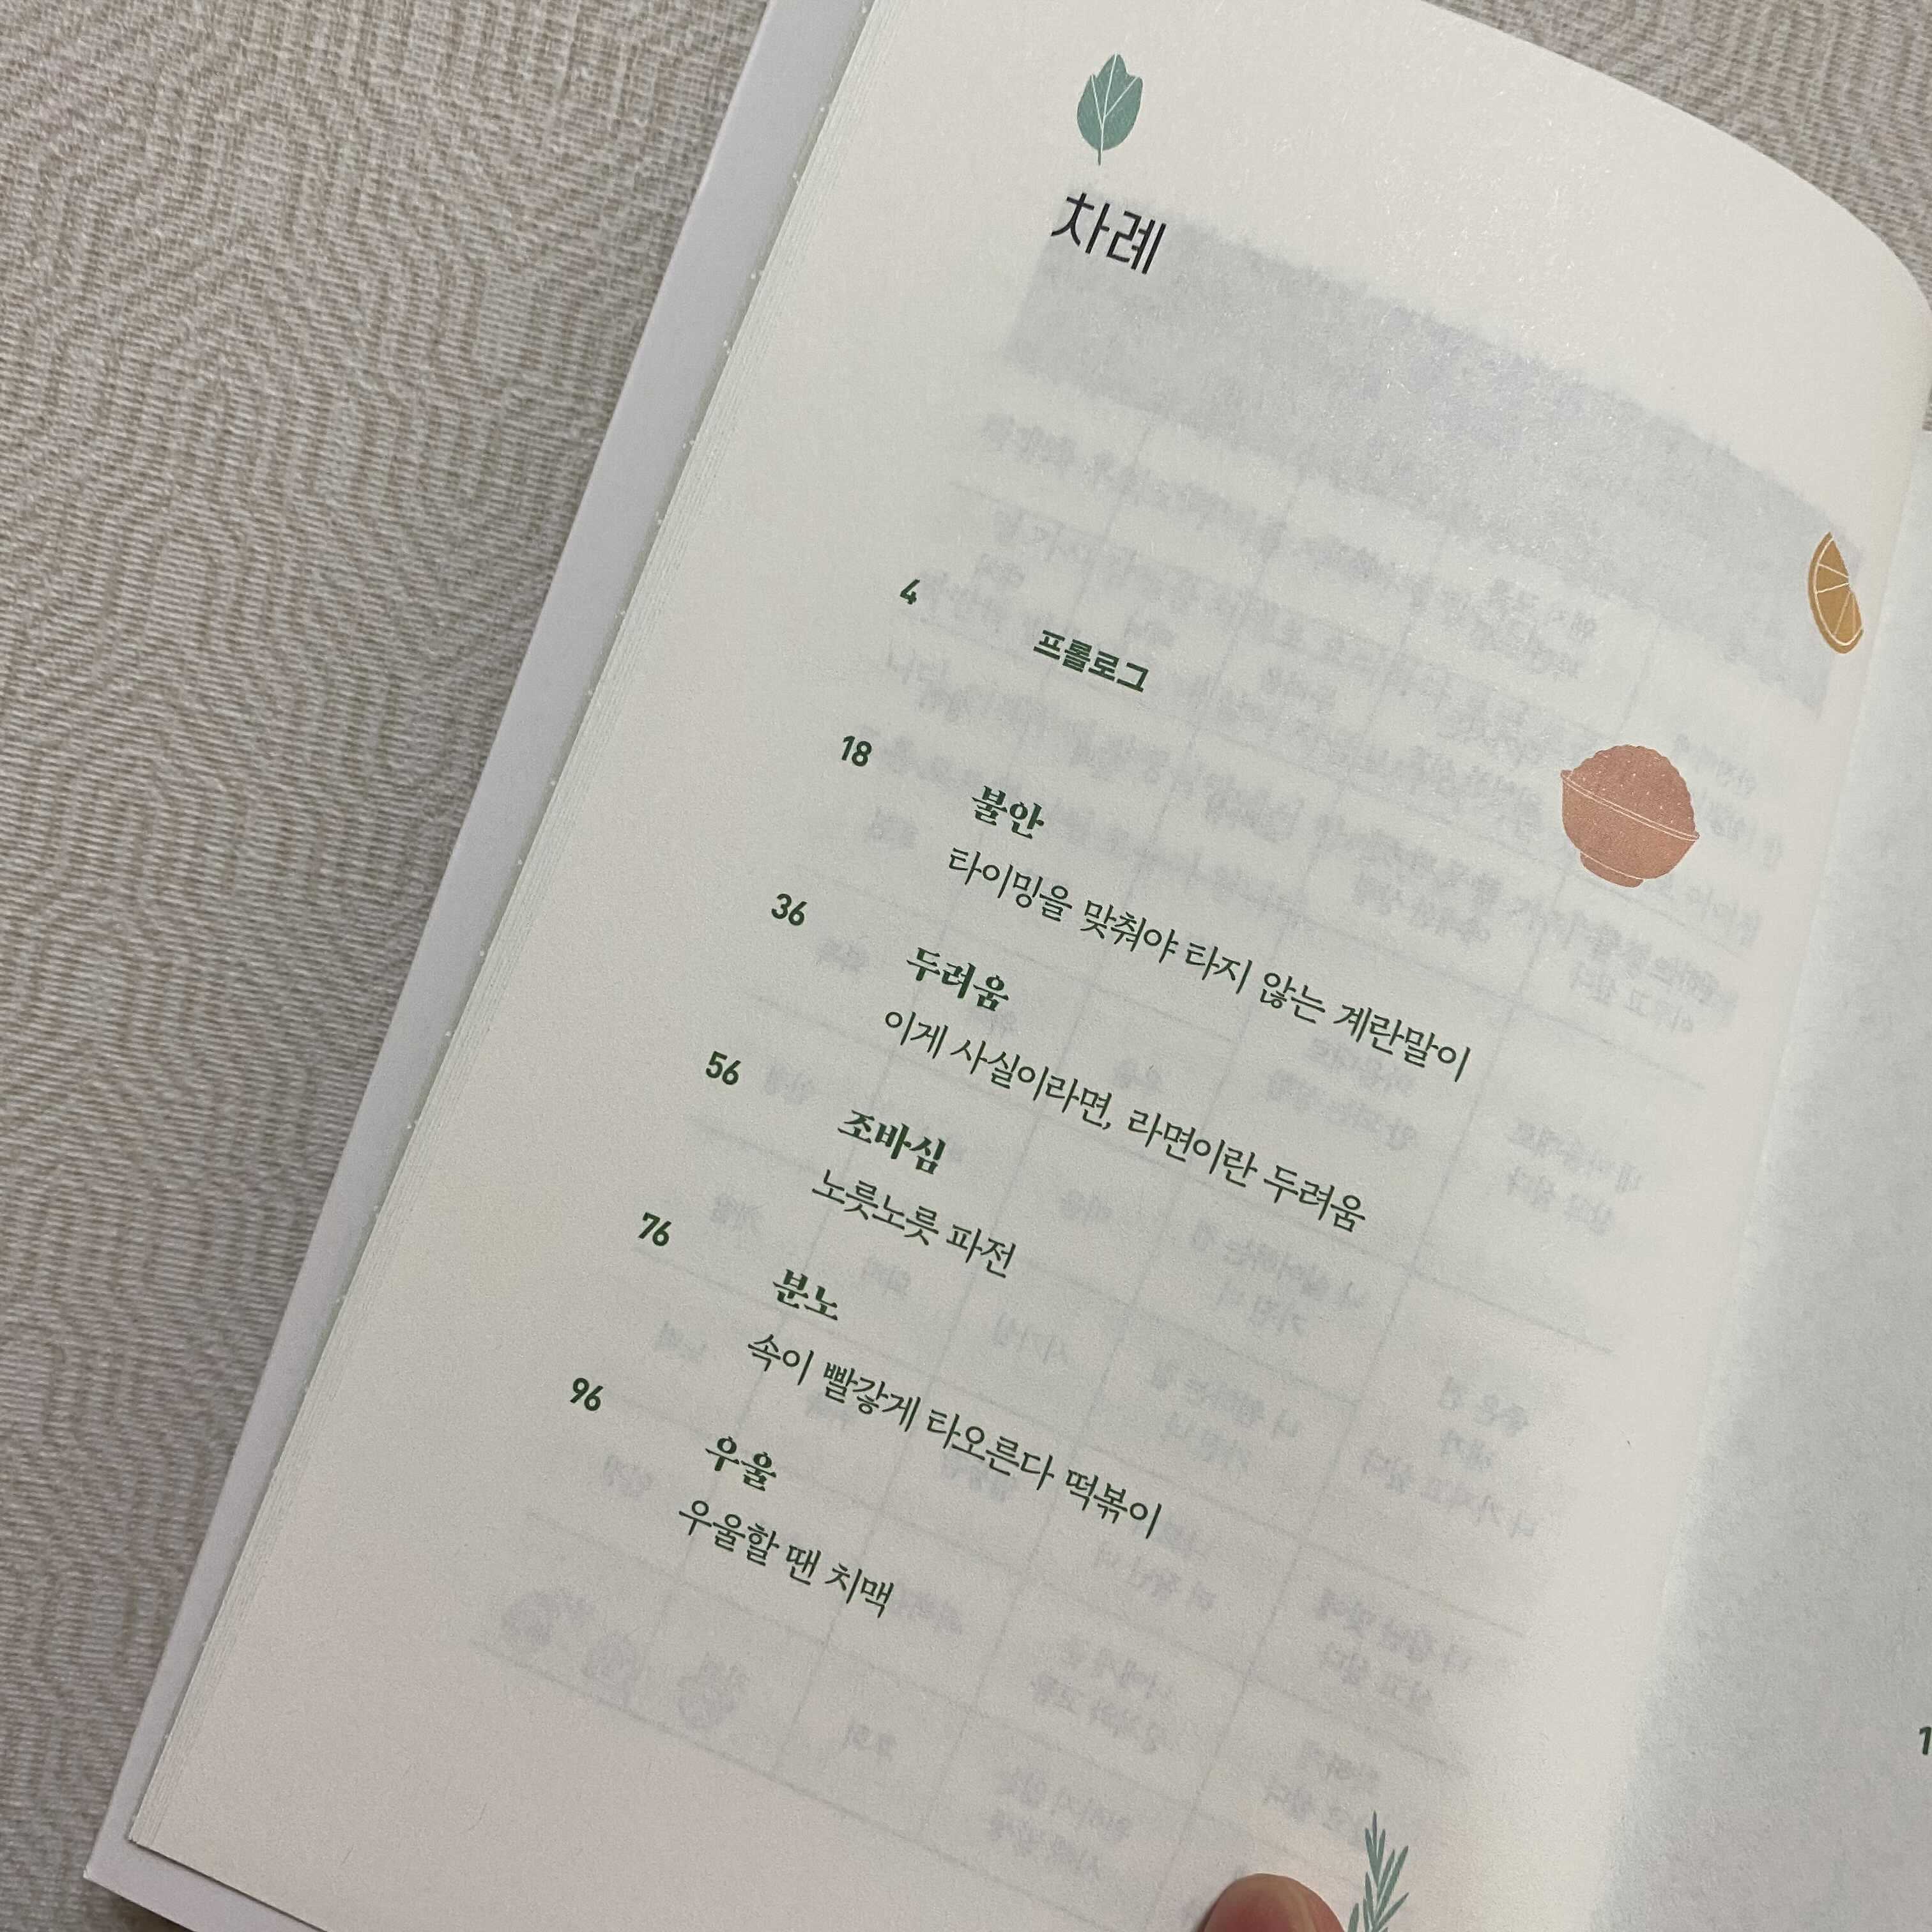 차례
4
프롤로그
18
불안
타이밍을 맞춰야 타지 않는 계란말이
36
두려움
이게 사실이라면, 라면이란 두려움
56
조바심
노릇노릇 파전
76
분노
속이 빨갛게 타오른다 떡볶이
96
우울
우울할 땐 치맥